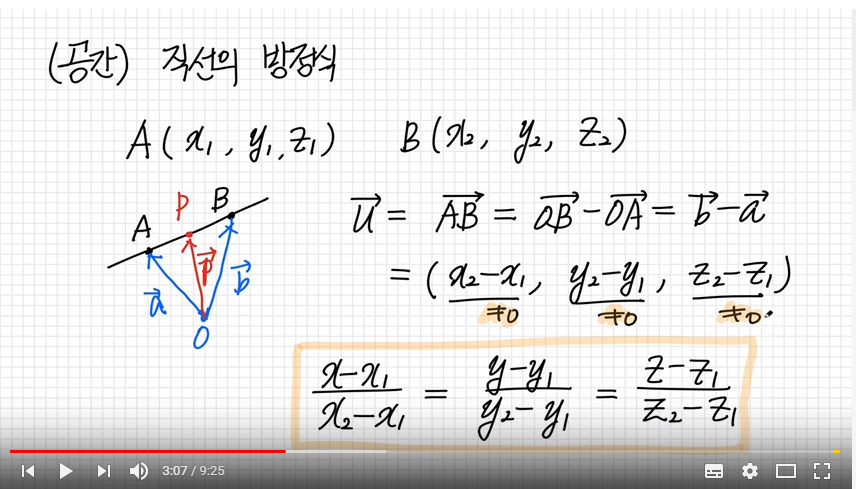 (공간) 직선의 방정식
A(x₁, y₁, z₁) B(x₂, y₂, z₂)
A P B
a⃗ p⃗ b⃗
O
u⃗ = AB⃗ = OB⃗ - OA⃗ = b⃗ - a⃗
= (x₂-x₁, y₂-y₁, z₂-z₁)
≠0 ≠0 ≠0
(x-x₁)/(x₂-x₁) = (y-y₁)/(y₂-y₁) = (z-z₁)/(z₂-z₁)
3:07 / 9:25